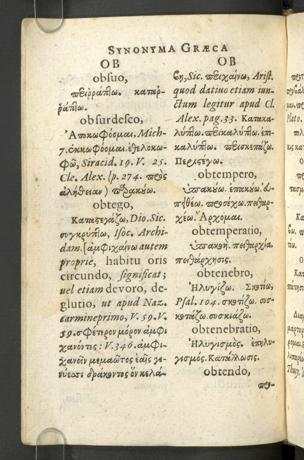 SYNONYMA GRÆCA
OB
obsuo,
περιρράπτω. καταρ-
ράπτω.
obsurdesco,
Ἀποκωφόομαι, Mich-
7. ἐκκωφόομαι. ἐθελοκω-
φῶ, Siracid. 19. V. 25.
Cle. Alex. (p. 274. πρὸς
ἀλήθειαν)
obtego,
Καταστεγάζω, Dio. Sic.
συγκρύπτω, Isoc. Archi-
dam. [ἀμφιχαίνω autem
proprie, habitu oris
circundo, significat;
vel etiam devoro, de-
glutio, ut apud Naz.
carmine primo, V. 59. V.
59. σφέτερον μόρον ἀμφι-
χανόντις: V. 346. ἀμφι-
χανεῖν μεμαῶτες
δράκοντος ὃν κελά-
OB
Sic. Arist.
quod dativo etiam iun-
ctum legitur apud Cl.
Alex. pag. 33. Κατακα-
λύπτω. περικαλύπτω. ἐπι-
καλύπτω. περισκεπάζω.
Περιστέγω.
obtempero,
ὑπακούω. ἐπακούω.
πείθομαι.
Ἄρχομαι.
obtemperatio,
ὑπακοή. πειθαρχία.
πειθάρχησις.
obtenebro,
Ἠλυγίζω. Σκοτόω,
Psal. 104. σκοτίζω. συσ-
κοτάζω. συσκιάζω.
obtenebratio,
Ἠλυγισμός. ἐπηλυ-
γισμός.
obtendo,